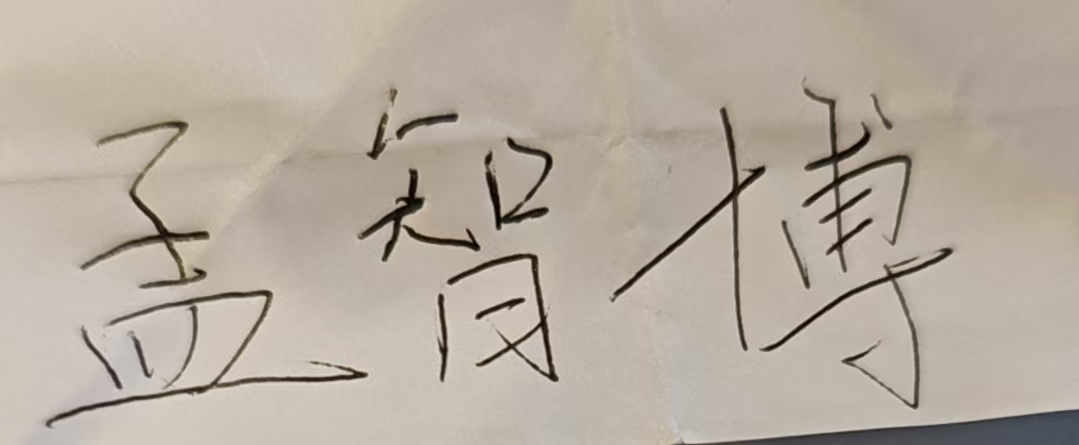 孟智博